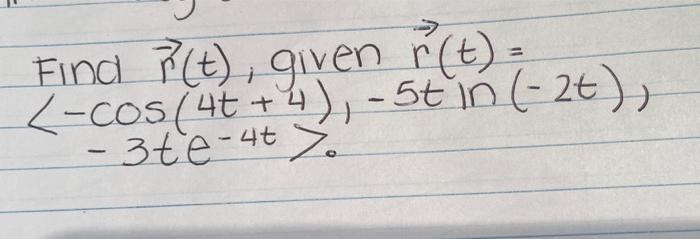 Find r⃗(t), given r⃗(t) =
<-cos(4t + 4), -5t ln(-2t),
-3te^{-4t}>.